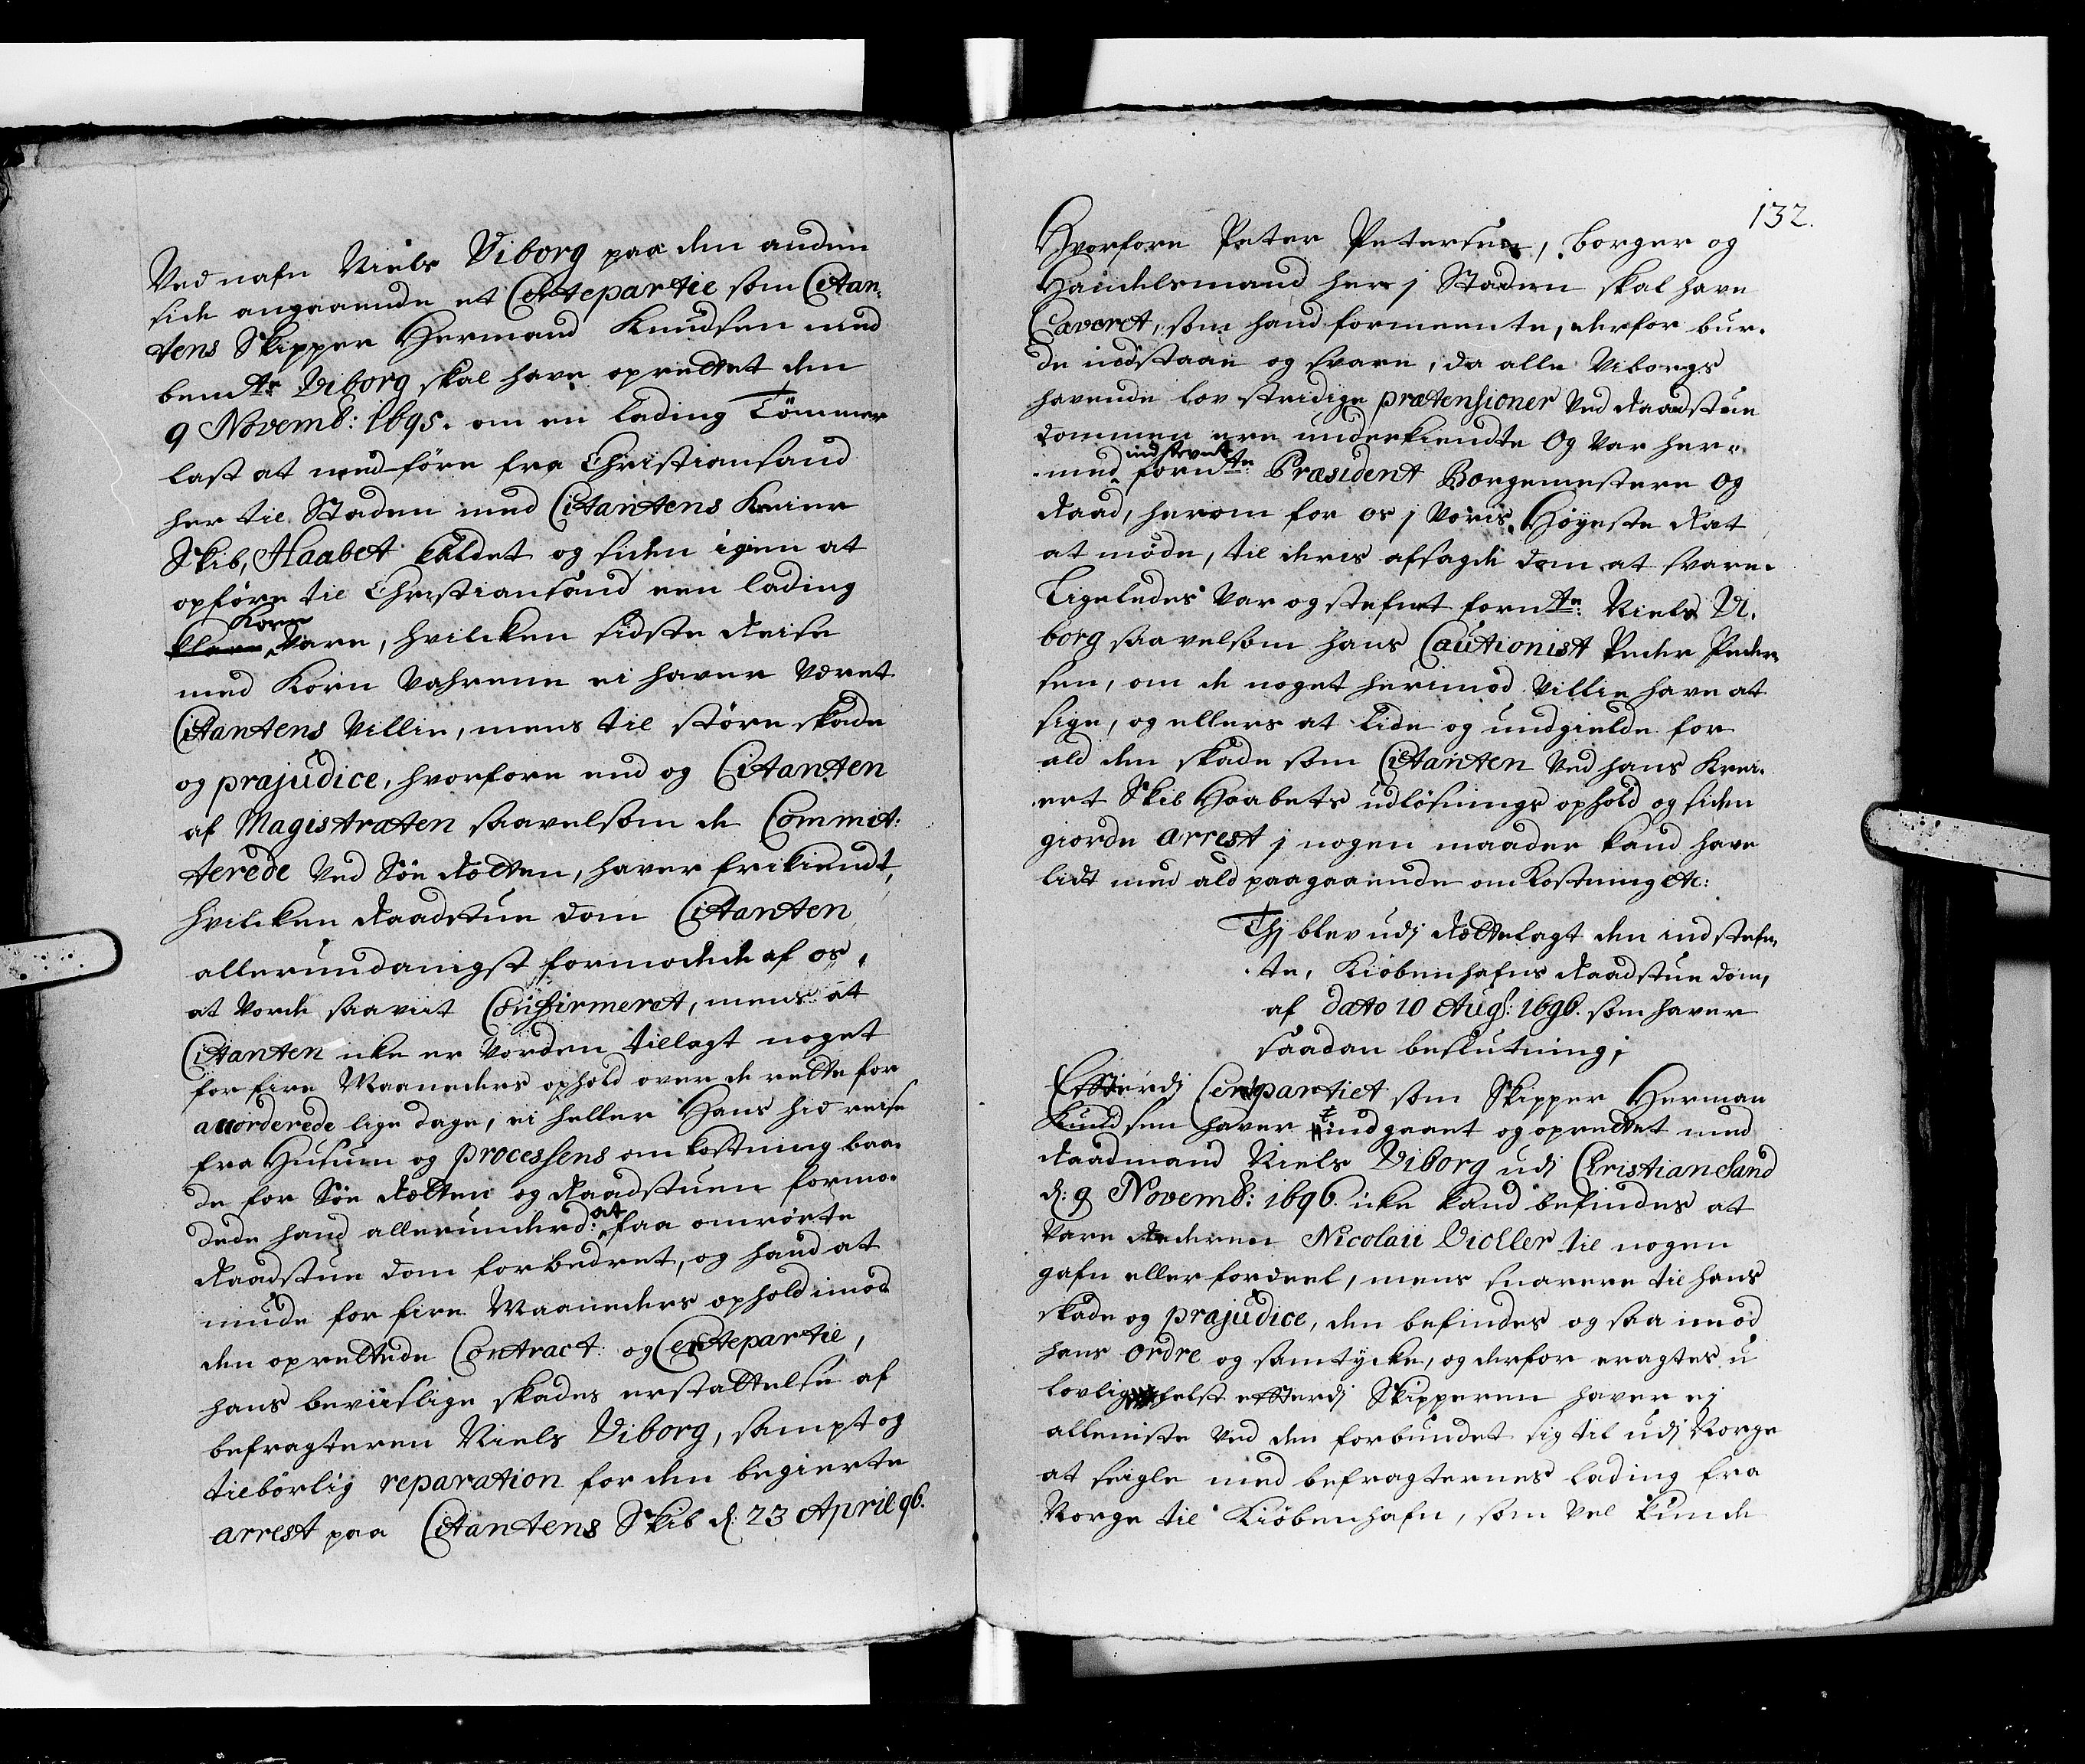 Ved nafn Niels Viborg paa den anden
side angaaende et Certepartie som Citan-
tens Skipper Hermand Knudsen med
bem.te Viborg skal have oprettet den
9 Novemb: 1695. om en Lading Tömmer
last at med føre fra Christiansand
her til Staden med Citantens Kreier
Skib, Haabet kaldet og siden igien at
opføre til Christiansand een lading
Korn
Vare, hvilcken sidste Reise
med Korn Vahrene ei haver Været
Citantens Villie, mens til støre skade
og præjudice, hvorfore end og Citanten
af Magistraten saavelsom de Commit-
terede Ved Søe Retten, haver frikiendt,
hvilcken Raadstue dom Citanten
allerundanigst formodede af os,
at vorde saa viit Confirmeret, mens at
Citanten icke er Vorden tillagt noget
for fire Maaneders ophold over de rette for
accorderede lige dage, ei heller Hans hid reise
fra Husum og processens omkostning baa-
de for Söe Retten og Raadstuen formo-
dede hand allerunderd: at faa omrörte
Raadstue dom forbedret, og hand at
niude for fire Maaneders ophold imod
den oprettede Contract og Certepartie,
hans beviislige skades erstattelse af
befragteren Niels Viborg, sampt og
tilbörlig reparation for den begierte
arrest paa Citantens Skib d: 23 April 96.
132.
Hvorfore Peter Petersen, borger og
Handelsmand her j Staden skal have
Caveret, som hand formeente, derfor bur-
de indstaae og svare, da alle Viborgs
havende lov stridige prætensioner Ved Raadstue
dommen ere underkiendte Og Var her-
med indstevnt forn.te Præsident Borgemestere Og
Raad, herom for os j Voris Høyeste Ret
at møde, til deris afsagde dom at svare.
Ligeledes Var og stefnet forn.te Niels Vi-
borg saavelsom hans Cautionist Peder Peder-
sen, om de noget herimod Villie have at
sige, og ellers at Lide og undgielde for
ald den skade som Citanten Ved hans Krei-
ert Skib Haabets udlösnings ophold og siden
giorde arrest j nogen maader kand have
lidt med ald paagaaende omkostning etc:
Thj blev udj Rettelagt den indstefn-
te, Kiöbenhafns Raadstue dom,
af dato 10 Aug: 1696. som haver
saadan beslutning;
Efterdj Certpartiet som Skipper Herman
Knudsen haver indgaaet og oprettet med
Raadmand Niels Viborg udj Christiansand
d: 9 Novemb: 1696. icke kand befindes at
Vare Rederen Nicolaii Vichler til nogen
gafn eller fordeel, mens snarere til hans
skade og præjudice, den befindes og saa imod
hans ordre og samtycke, og derfor eragtes u
lovlig helst efterdj Skipperen haver ej
alleniste Ved den forbundet sig til udj Norge
at seigle med befragternes lading fra
Norge til Kiöbenhafn, som vel kunde